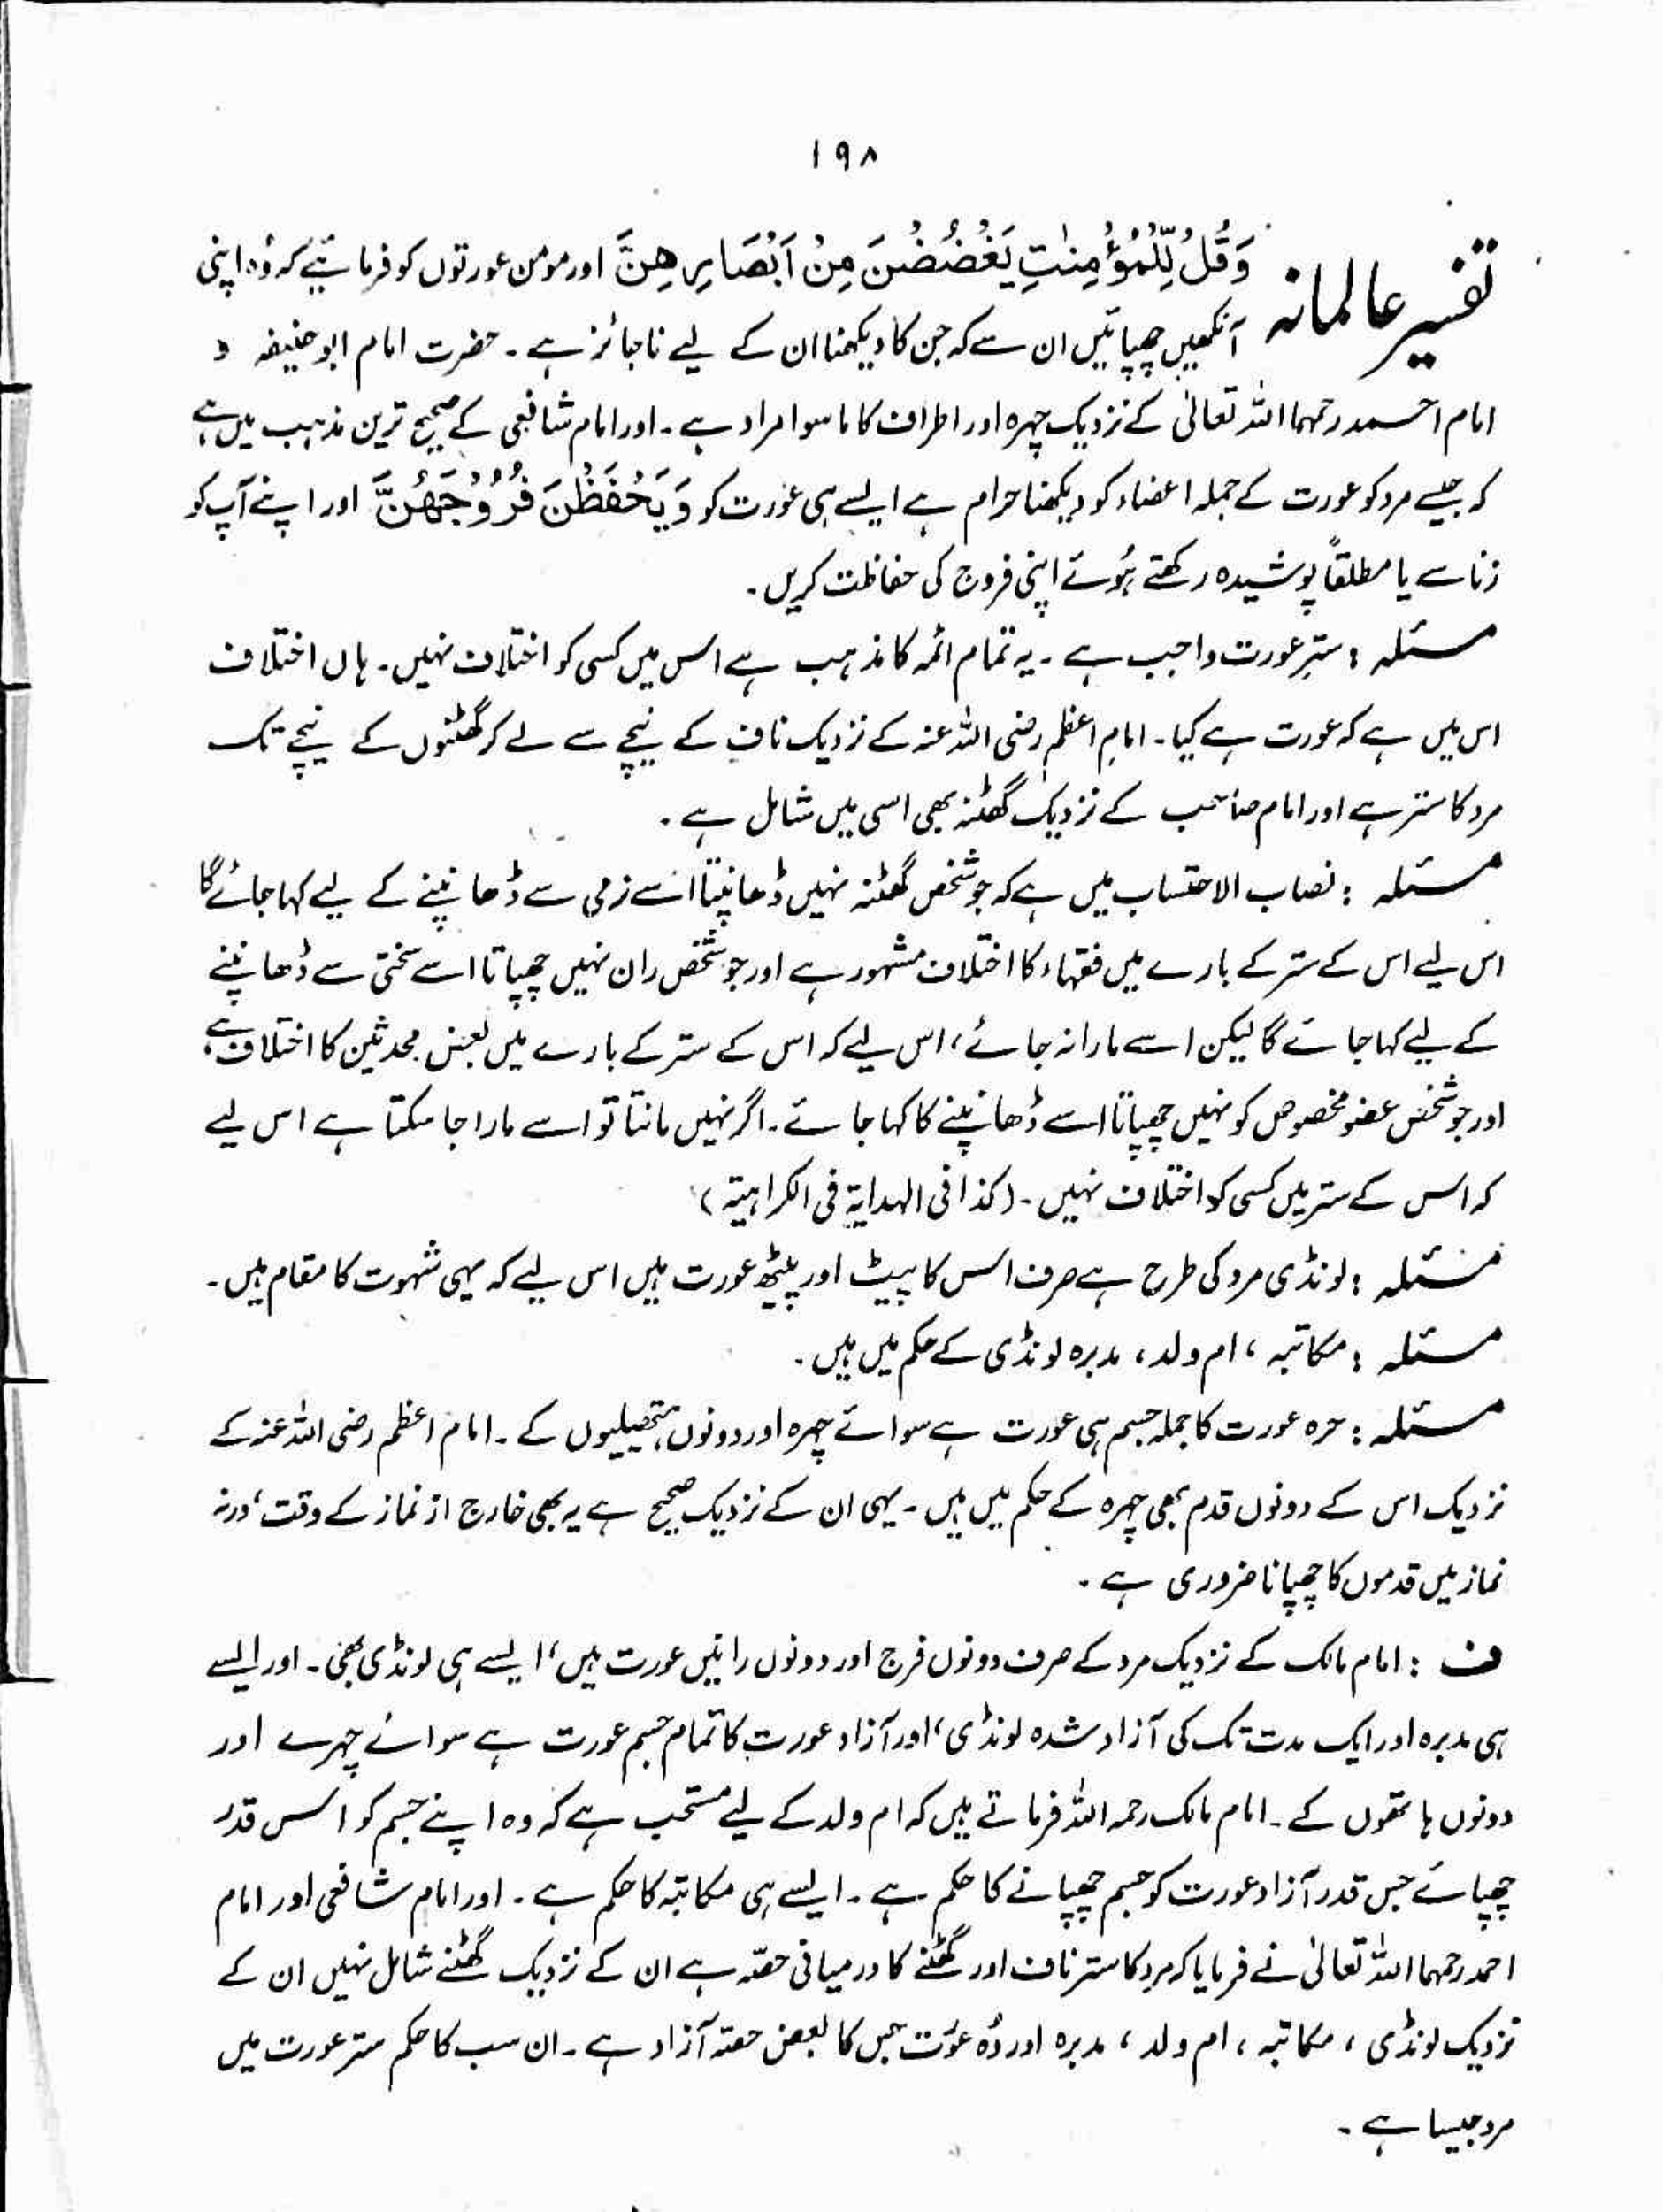 ۱۹۸
تفسیر عالمانہ وَقُلْ لِّلْمُؤْمِنٰتِ يَغْضُضْنَ مِنْ اَبْصَارِهِنَّ اور مومن عورتوں کو فرمائیے کہ وُہ اپنی
آنکھیں چھپائیں ان سے کہ جن کا دیکھنا ان کے لیے ناجائز ہے۔ حضرت امام ابو حنیفہ و
امام احمد رحمہما اللہ تعالیٰ کے نزدیک چہرہ اور اطراف کا ماسوا مراد ہے۔ اور امام شافعی کے صحیح ترین مذہب میں ہے
کہ جیسے مرد کو عورت کے جملہ اعضاء کو دیکھنا حرام ہے ایسے ہی عورت کو وَيَحْفَظْنَ فُرُوْجَهُنَّ اور اپنے آپ کو
زنا سے یا مطلقاً پوشیدہ رکھتے ہُوئے اپنی فروج کی حفاظت کریں۔
مسئلہ : سترِ عورت واجب ہے۔ یہ تمام ائمہ کا مذہب ہے اس میں کسی کو اختلاف نہیں۔ ہاں اختلاف
اس میں ہے کہ عورت ہے کیا۔ امامِ اعظم رضی اللہ عنہ کے نزدیک ناف کے نیچے سے لے کر گھٹنوں کے نیچے تک
مرد کا ستر ہے اور امام صاحب کے نزدیک گھٹنہ بھی اسی میں شامل ہے۔
مسئلہ : نصاب الاحتساب میں ہے کہ جو شخص گھٹنہ نہیں ڈھانپتا اسے نرمی سے ڈھانپنے کے لیے کہا جائے گا
اس لیے اس کے ستر کے بارے میں فقہاء کا اختلاف مشہور ہے اور جو شخص ران نہیں چھپاتا اسے سختی سے ڈھانپنے
کے لیے کہا جائے گا لیکن اسے مارا نہ جائے، اس لیے کہ اس کے ستر کے بارے میں بعض محدثین کا اختلاف ہے
اور جو شخص عضو مخصوص کو نہیں چھپاتا اسے ڈھانپنے کا کہا جائے۔ اگر نہیں مانتا تو اسے مارا جا سکتا ہے اس لیے
کہ اس کے ستر میں کسی کو اختلاف نہیں۔ (کذا فی الہدایۃ فی الکراہیۃ)
مسئلہ : لونڈی مرد کی طرح ہے صرف اس کا پیٹ اور پیٹھ عورت ہیں اس لیے کہ یہی شہوت کا مقام ہیں۔
مسئلہ : مکاتبہ ، ام ولد ، مدبرہ لونڈی کے حکم میں ہیں۔
مسئلہ : حرہ عورت کا جملہ جسم ہی عورت ہے سوائے چہرہ اور دونوں ہتھیلیوں کے۔ امام اعظم رضی اللہ عنہ کے
نزدیک اس کے دونوں قدم بھی چہرہ کے حکم میں ہیں۔ یہی ان کے نزدیک صحیح ہے یہ بھی خارج از نماز کے وقت، ورنہ
نماز میں قدموں کا چھپانا ضروری ہے۔
ف : امام مالک کے نزدیک مرد کے صرف دونوں فرج اور دونوں رانیں عورت ہیں، ایسے ہی لونڈی بھی۔ اور ایسے
ہی مدبرہ اور ایک مدت تک کی آزاد شدہ لونڈی، اور آزاد عورت کا تمام جسم عورت ہے سوائے چہرے اور
دونوں ہاتھوں کے۔ امام مالک رحمہ اللہ فرماتے ہیں کہ ام ولد کے لیے مستحب ہے کہ وہ اپنے جسم کو اس قدر
چھپائے جس قدر آزاد عورت کو جسم چھپانے کا حکم ہے۔ ایسے ہی مکاتبہ کا حکم ہے۔ اور امام شافعی اور امام
احمد رحمہما اللہ تعالیٰ نے فرمایا کہ مرد کا ستر ناف اور گھٹنے کا درمیانی حصّہ ہے ان کے نزدیک گھٹنے شامل نہیں ان کے
نزدیک لونڈی ، مکاتبہ ، ام ولد ، مدبرہ اور وُہ عورت جس کا بعض حصّہ آزاد ہے۔ ان سب کا حکم ستر عورت میں
مرد جیسا ہے۔